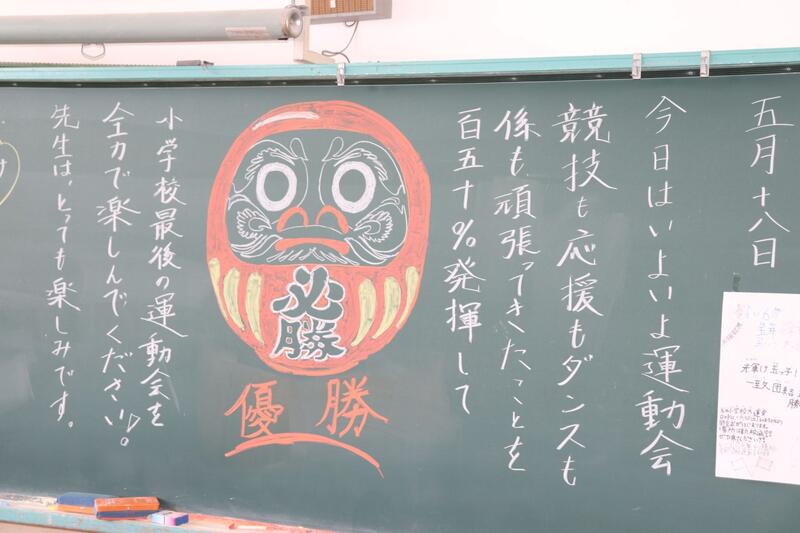 五月十八日
今日はいよいよ運動会
競技も応援もダンスも
係も頑張ってきたことを
百五十%発揮して
必勝
優勝
小学校最後の運動会を
全力で楽しんでください。
先生は、とっても楽しみです。